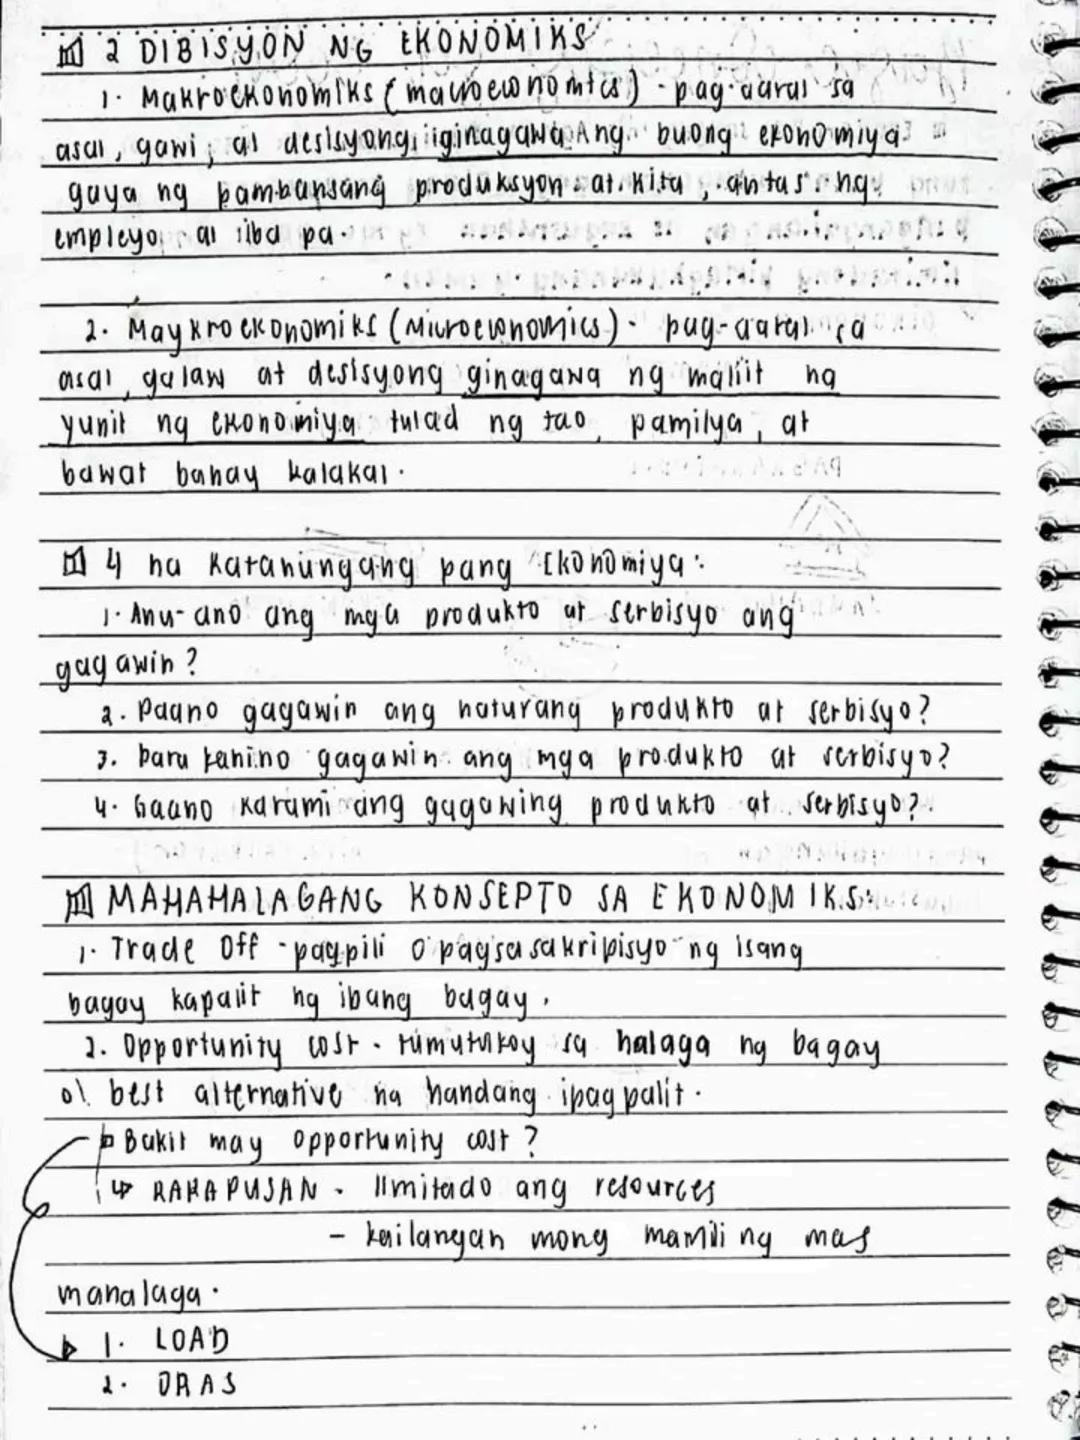 2 DIBISYON NG EKONOMIKS
1. Makroekonomiks (macroeconomics) - pag-aaral sa
asal, gawi, at desisyong iginagawa Ang buong ekonomiya
gaya ng pambansang produksyon at kita, antas ng
empleyo at iba pa.
2. Maykroekonomiks (Microeconomics) - pag-aaral sa
asal, galaw at desisyong ginagawa ng maliit na
yunit ng ekonomiya tulad ng tao, pamilya, at
bawat bahay kalakal.
4 na Katanungang pang Ekonomiya:
1. Anu-ano ang mga produkto at serbisyo ang
gagawin?
2. Paano gagawin ang naturang produkto at serbisyo?
3. para kanino gagawin ang mga produkto at serbisyo?
4. Gaano karami ang gagawing produkto at serbisyo?
MAHAHALAGANG KONSEPTO SA EKONOMIKS:
1. Trade Off - pagpili o pagsasakripisyo ng isang
bagay kapalit ng ibang bagay.
2. Opportunity cost - tumutukoy sa halaga ng bagay
o\ best alternative na handang ipagpalit.
Bakit may opportunity cost?
↳ KAKAPUSAN - limitado ang resources
- kailangan mong mamili ng mas
mahalaga.
1. LOAD
2. ORAS